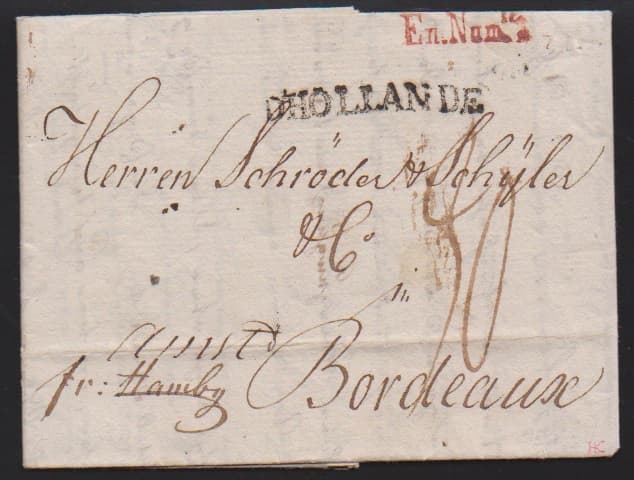 En.Num.re
D'HOLLANDE
Herren Schröder & Schÿler
& Co
in
Bordeaux
fr: Hambg
30
HC